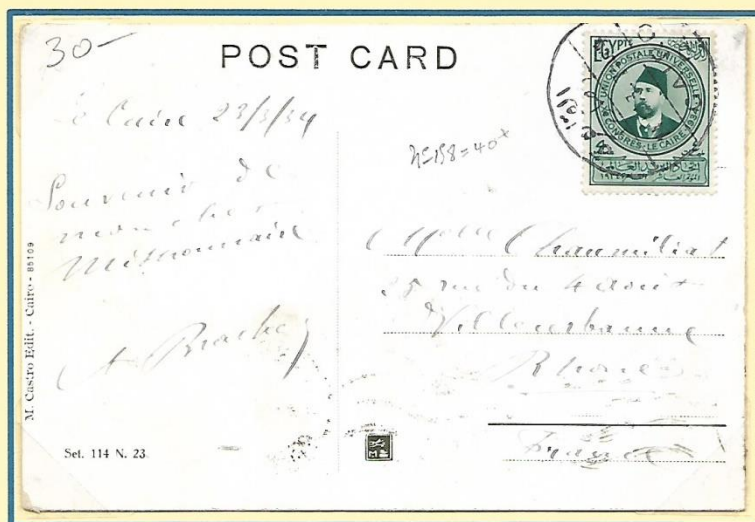 30-
POST CARD
Le Caire 23/3/34
Souvenir de
mon cher
Missionnaire
A
M. Castro Edit. - Cairo - 85109
Set. 114 N. 23.
N=158=40+
EGYPTE
UNION POSTALE UNIVERSELLE
X CONGRES·LE CAIRE 1934
Melle Chaumillat
25 rue du 4 août
Villeurbanne
Rhône
France